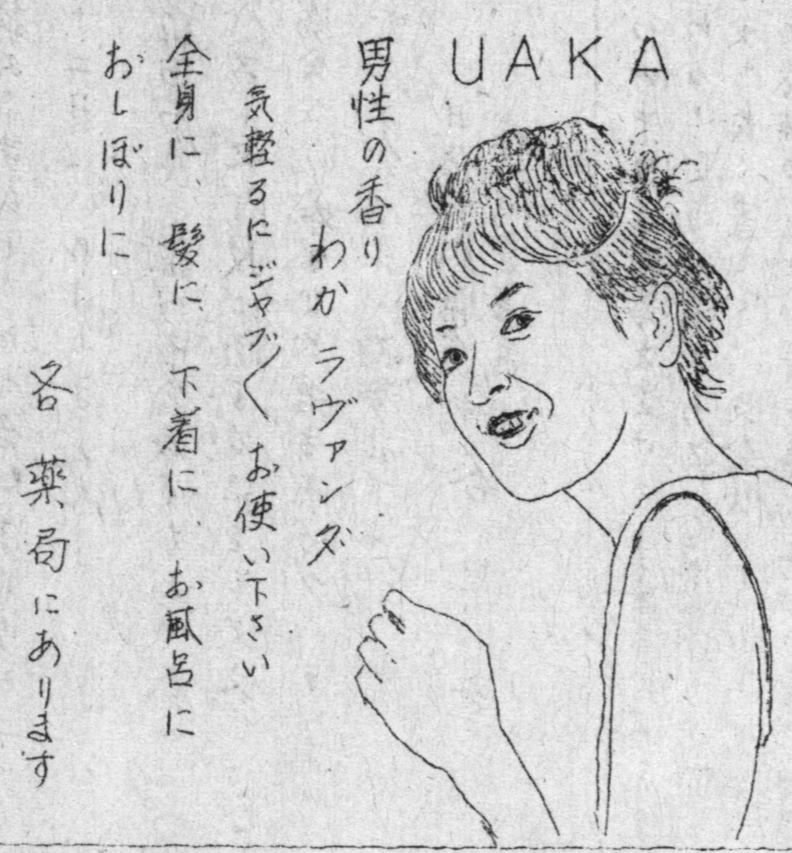 UAKA
男性の香り
わか ラヴァンダ
気軽るにジャブ／＼ お使い下さい
全身に、髪に、下着に、お風呂に
おしぼりに
各薬局にあります